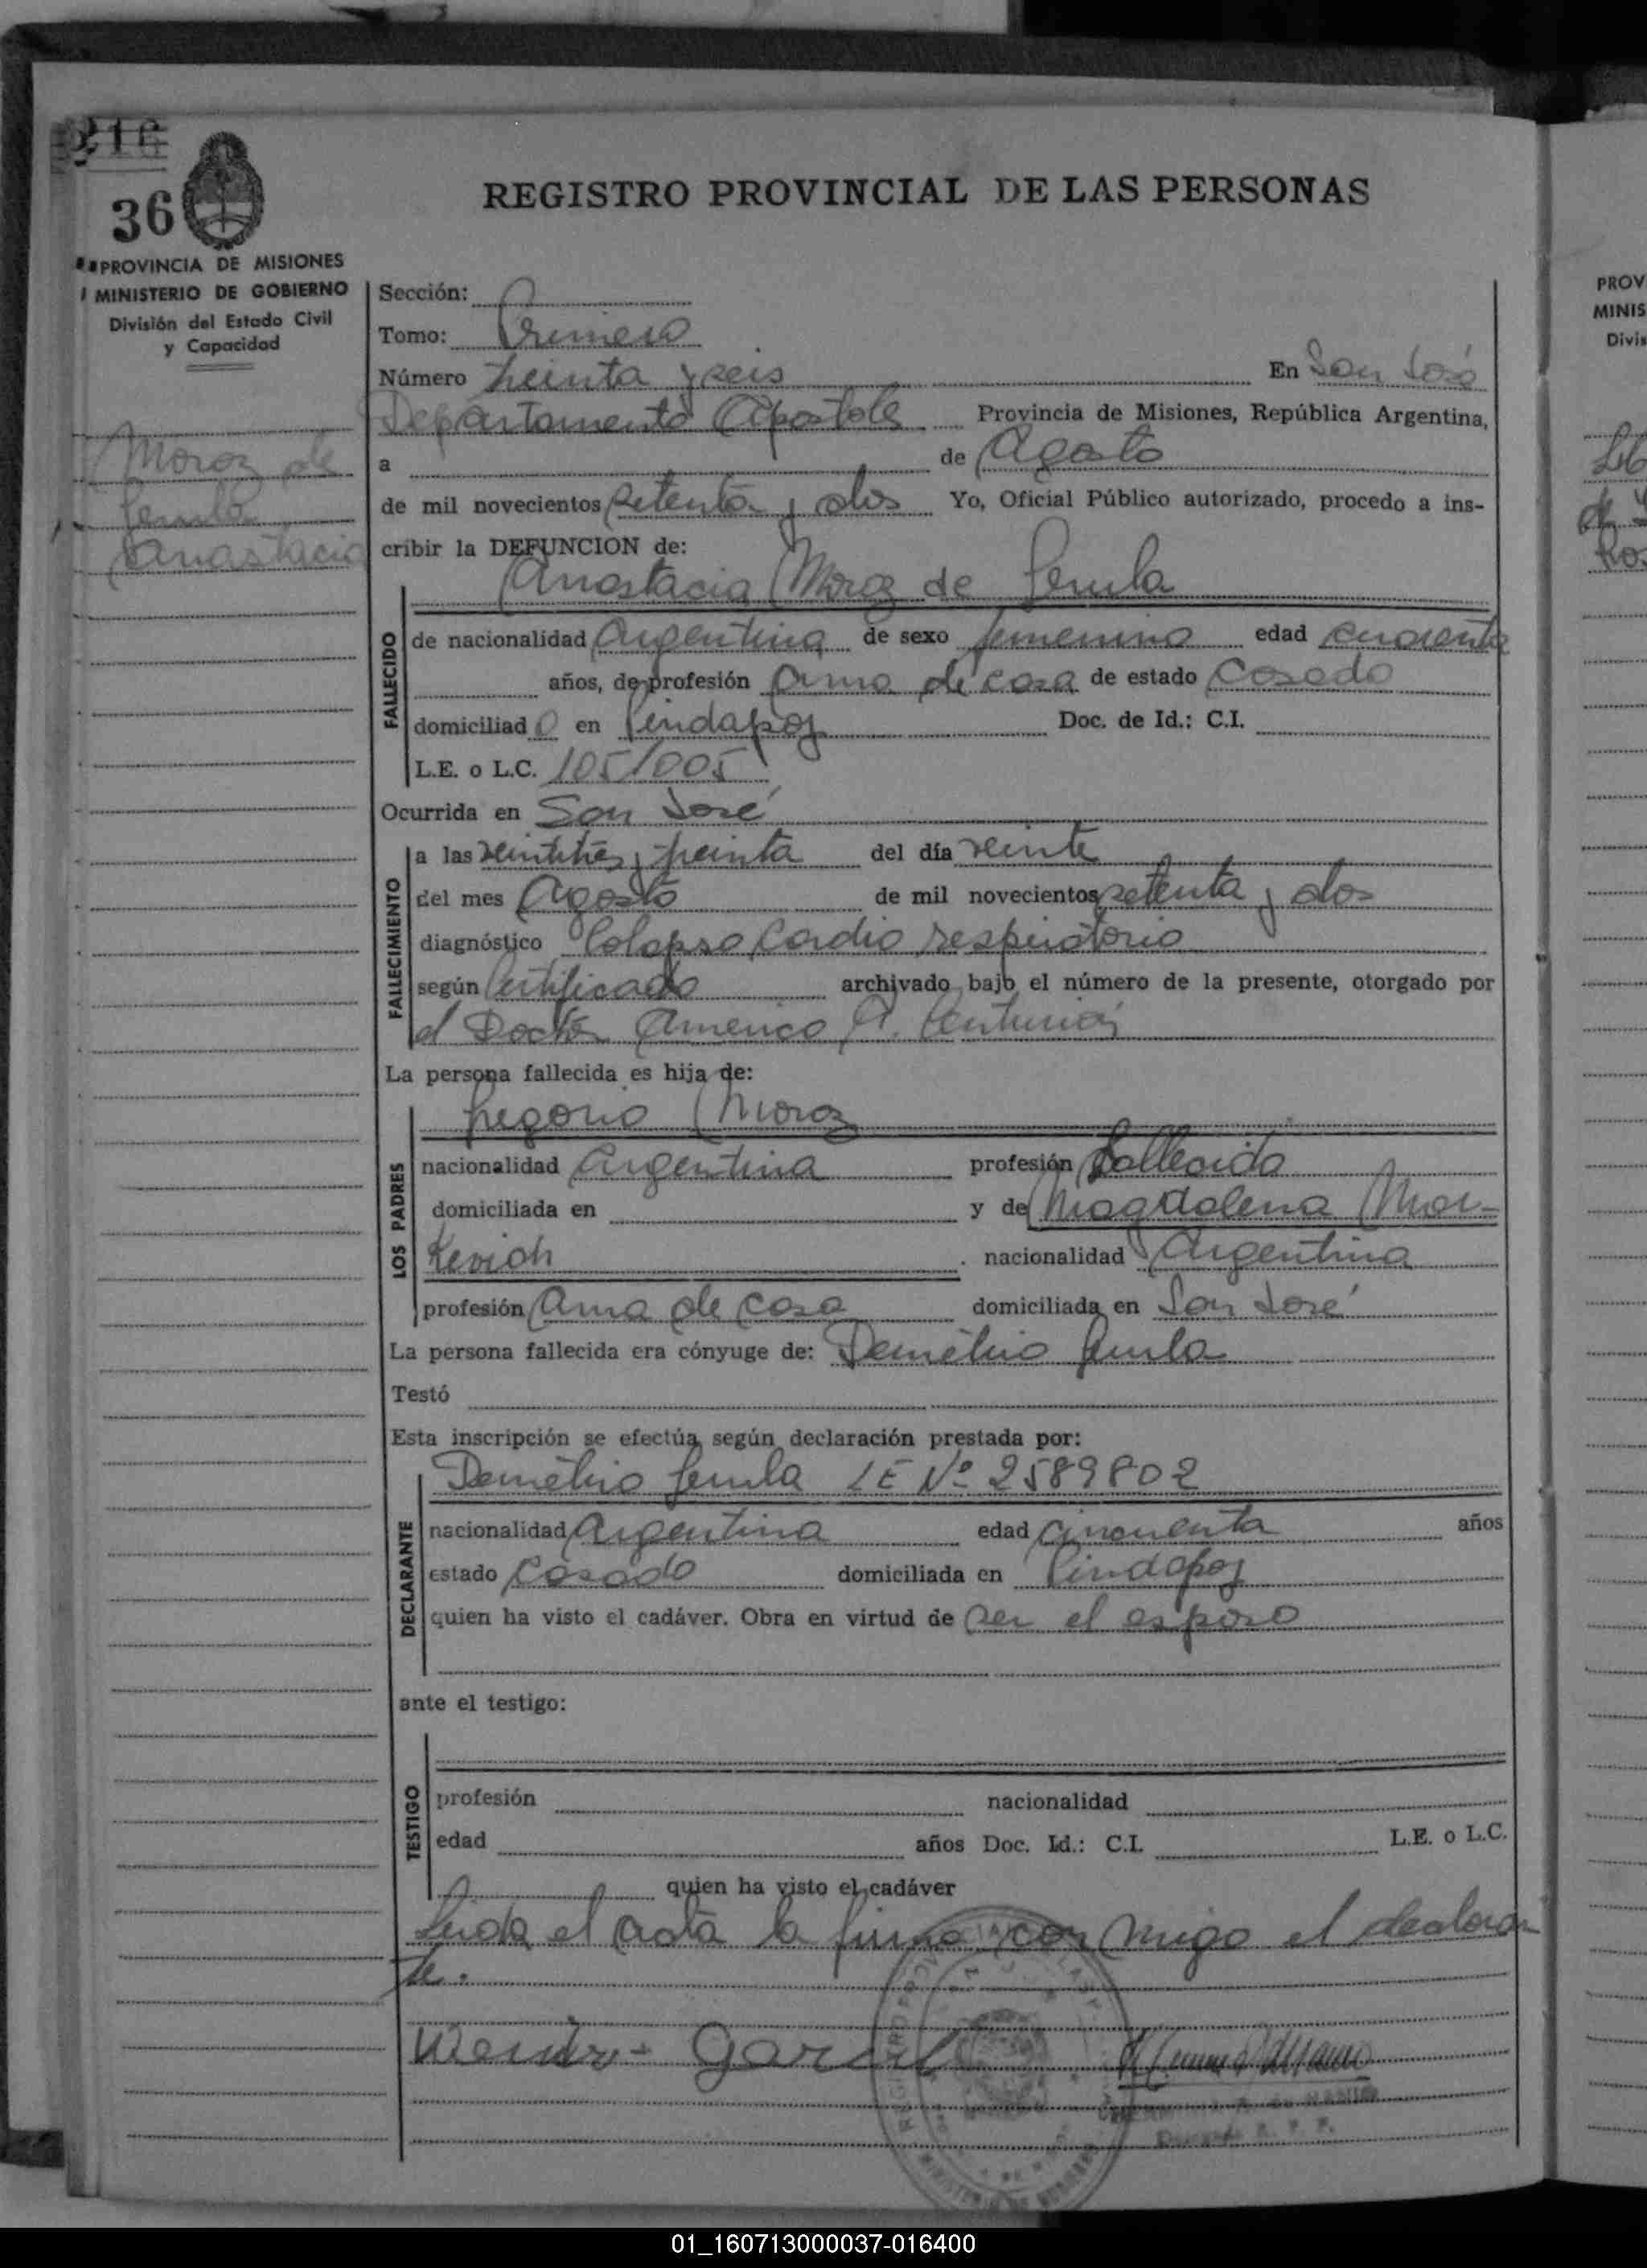 216
36
REGISTRO PROVINCIAL DE LAS PERSONAS
PROVINCIA DE MISIONES
MINISTERIO DE GOBIERNO
División del Estado Civil
y Capacidad
Moroz de
Anastacia
Sección:
Tomo: Primero
Número treinta y seis En San José
Departamento Apostoles Provincia de Misiones, República Argentina,
a de Agosto
de mil novecientos setenta y dos Yo, Oficial Público autorizado, procedo a ins-
cribir la DEFUNCION de:
Anastacia Moroz de
FALLECIDO
de nacionalidad Argentina de sexo femenino edad cuarenta
años, de profesión Ama de casa de estado Casado
domiciliado en Pindapoy Doc. de Id.: C.I.
L.E. o L.C. 1051005
Ocurrida en San José
FALLECIMIENTO
a las veintitres y treinta del día veinte
del mes Agosto de mil novecientos setenta y dos
diagnóstico Colapso Cardio respiratorio
según Certificado archivado bajo el número de la presente, otorgado por
el Doctor Americo A. Centurión
La persona fallecida es hija de:
LOS PADRES
Gregorio Moroz
nacionalidad Argentina profesión fallecido
domiciliada en y de Magdalena Mar-
kevich nacionalidad Argentina
profesión Ama de casa domiciliada en San José
La persona fallecida era cónyuge de: Demetrio
Testó
Esta inscripción se efectúa según declaración prestada por:
DECLARANTE
Demetrio LE Nº 2589802
nacionalidad Argentina edad cincuenta años
estado Casado domiciliada en Pindapoy
quien ha visto el cadáver. Obra en virtud de ser el esposo
ante el testigo:
TESTIGO
profesión nacionalidad
edad años Doc. Id.: C.I. L.E. o L.C.
quien ha visto el cadáver
Leida el acta la firma con migo el declaran
te.
PROV
MINIS
Divis
01_160713000037-016400